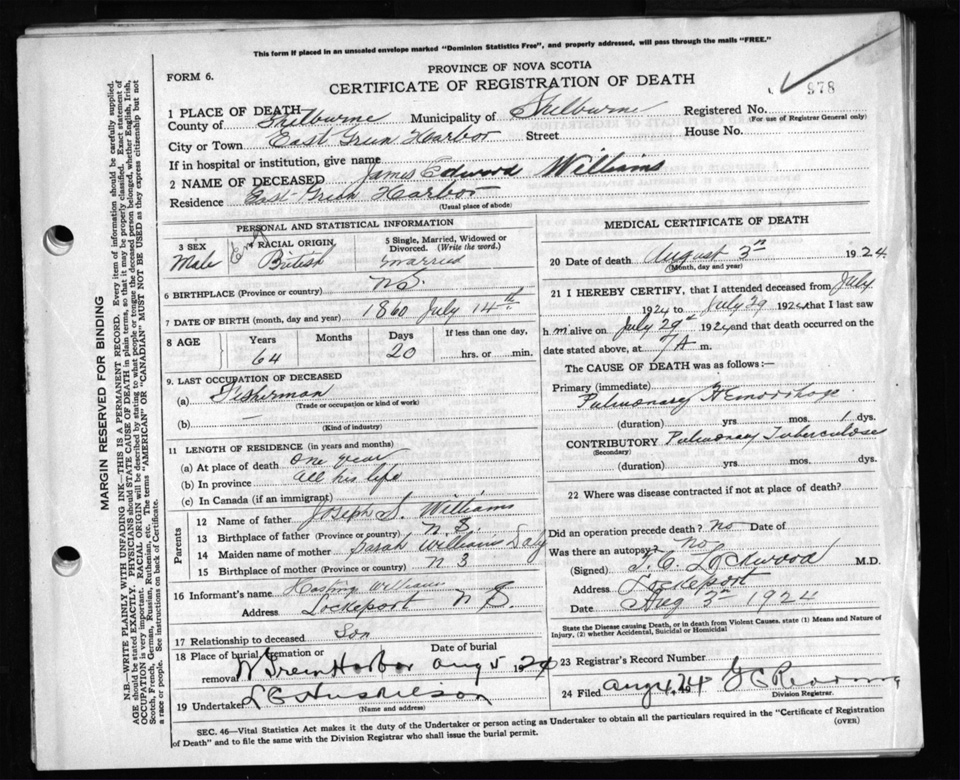 This form if placed in an unsealed envelope marked "Dominion Statistics Free", and properly addressed, will pass through the mails "FREE."
FORM 6.
PROVINCE OF NOVA SCOTIA
CERTIFICATE OF REGISTRATION OF DEATH
978
1 PLACE OF DEATH
County of Shelburne Municipality of Shelburne Registered No.
(For use of Registrar General only)
City or Town East Green Harbor Street House No.
If in hospital or institution, give name
2 NAME OF DECEASED James Edward Williams
Residence East Green Harbor
(Usual place of abode)
PERSONAL AND STATISTICAL INFORMATION
3 SEX Male
4 RACIAL ORIGIN Eng British
5 Single, Married, Widowed or Divorced. (Write the word.) Married
6 BIRTHPLACE (Province or country) N.S.
7 DATE OF BIRTH (month, day and year) 1860 July 14th
8 AGE Years Months Days If less than one day,
64 20 hrs. or min.
9. LAST OCCUPATION OF DECEASED
(a) Fisherman
(Trade or occupation or kind of work)
(b)
(Kind of industry)
11 LENGTH OF RESIDENCE (in years and months)
(a) At place of death One year
(b) In province all his life
(c) In Canada (if an immigrant)
Parents
12 Name of father Joseph S. Williams
13 Birthplace of father (Province or country) N.S.
14 Maiden name of mother Sarah Williams
15 Birthplace of mother (Province or country) N S
16 Informant's name Williams
Address Lockeport N S.
17 Relationship to deceased Son
18 Place of burial, cremation or removal Date of burial
W Green Harbor Aug 5 1924
19 Undertaker
(Name and address)
MEDICAL CERTIFICATE OF DEATH
20 Date of death August 3rd 1924
(Month, day and year)
21 I HEREBY CERTIFY, that I attended deceased from July
1924 to July 29 1924 that I last saw
h m alive on July 29th 1924 and that death occurred on the
date stated above, at 7 A m.
The CAUSE OF DEATH was as follows:—
Primary (immediate)
Pulmonary Hemorrhage
(duration) yrs. mos. 1 dys.
CONTRIBUTORY Pulmonary Tuberculosis
(Secondary)
(duration) yrs. mos. dys.
22 Where was disease contracted if not at place of death?
Did an operation precede death? No Date of
Was there an autopsy? No
(Signed) Lockwood M.D.
Address Lockeport
Date Aug 3rd 1924
State the Disease causing Death, or in death from Violent Causes, state (1) Means and Nature of
Injury, (2) whether Accidental, Suicidal or Homicidal
23 Registrar's Record Number
24 Filed Aug
Division Registrar.
SEC. 46—Vital Statistics Act makes it the duty of the Undertaker or person acting as Undertaker to obtain all the particulars required in the "Certificate of Registration
of Death" and to file the same with the Division Registrar who shall issue the burial permit.
(OVER)
MARGIN RESERVED FOR BINDING
N.B.—WRITE PLAINLY WITH UNFADING INK—THIS IS A PERMANENT RECORD. Every item of information should be carefully supplied.
AGE should be stated EXACTLY. PHYSICIANS should STATE CAUSE OF DEATH in plain terms, so that it may be properly classified. Exact statement of
OCCUPATION is very important. RACIAL ORIGIN will be described by stating to what people or tongue the deceased person belonged, whether English, Irish,
Scotch, French, German, Russian, Ruthenian, etc. The terms "AMERICAN" OR "CANADIAN" MUST NOT BE USED as they express citizenship but not
a race or people. See instructions on back of Certificate.